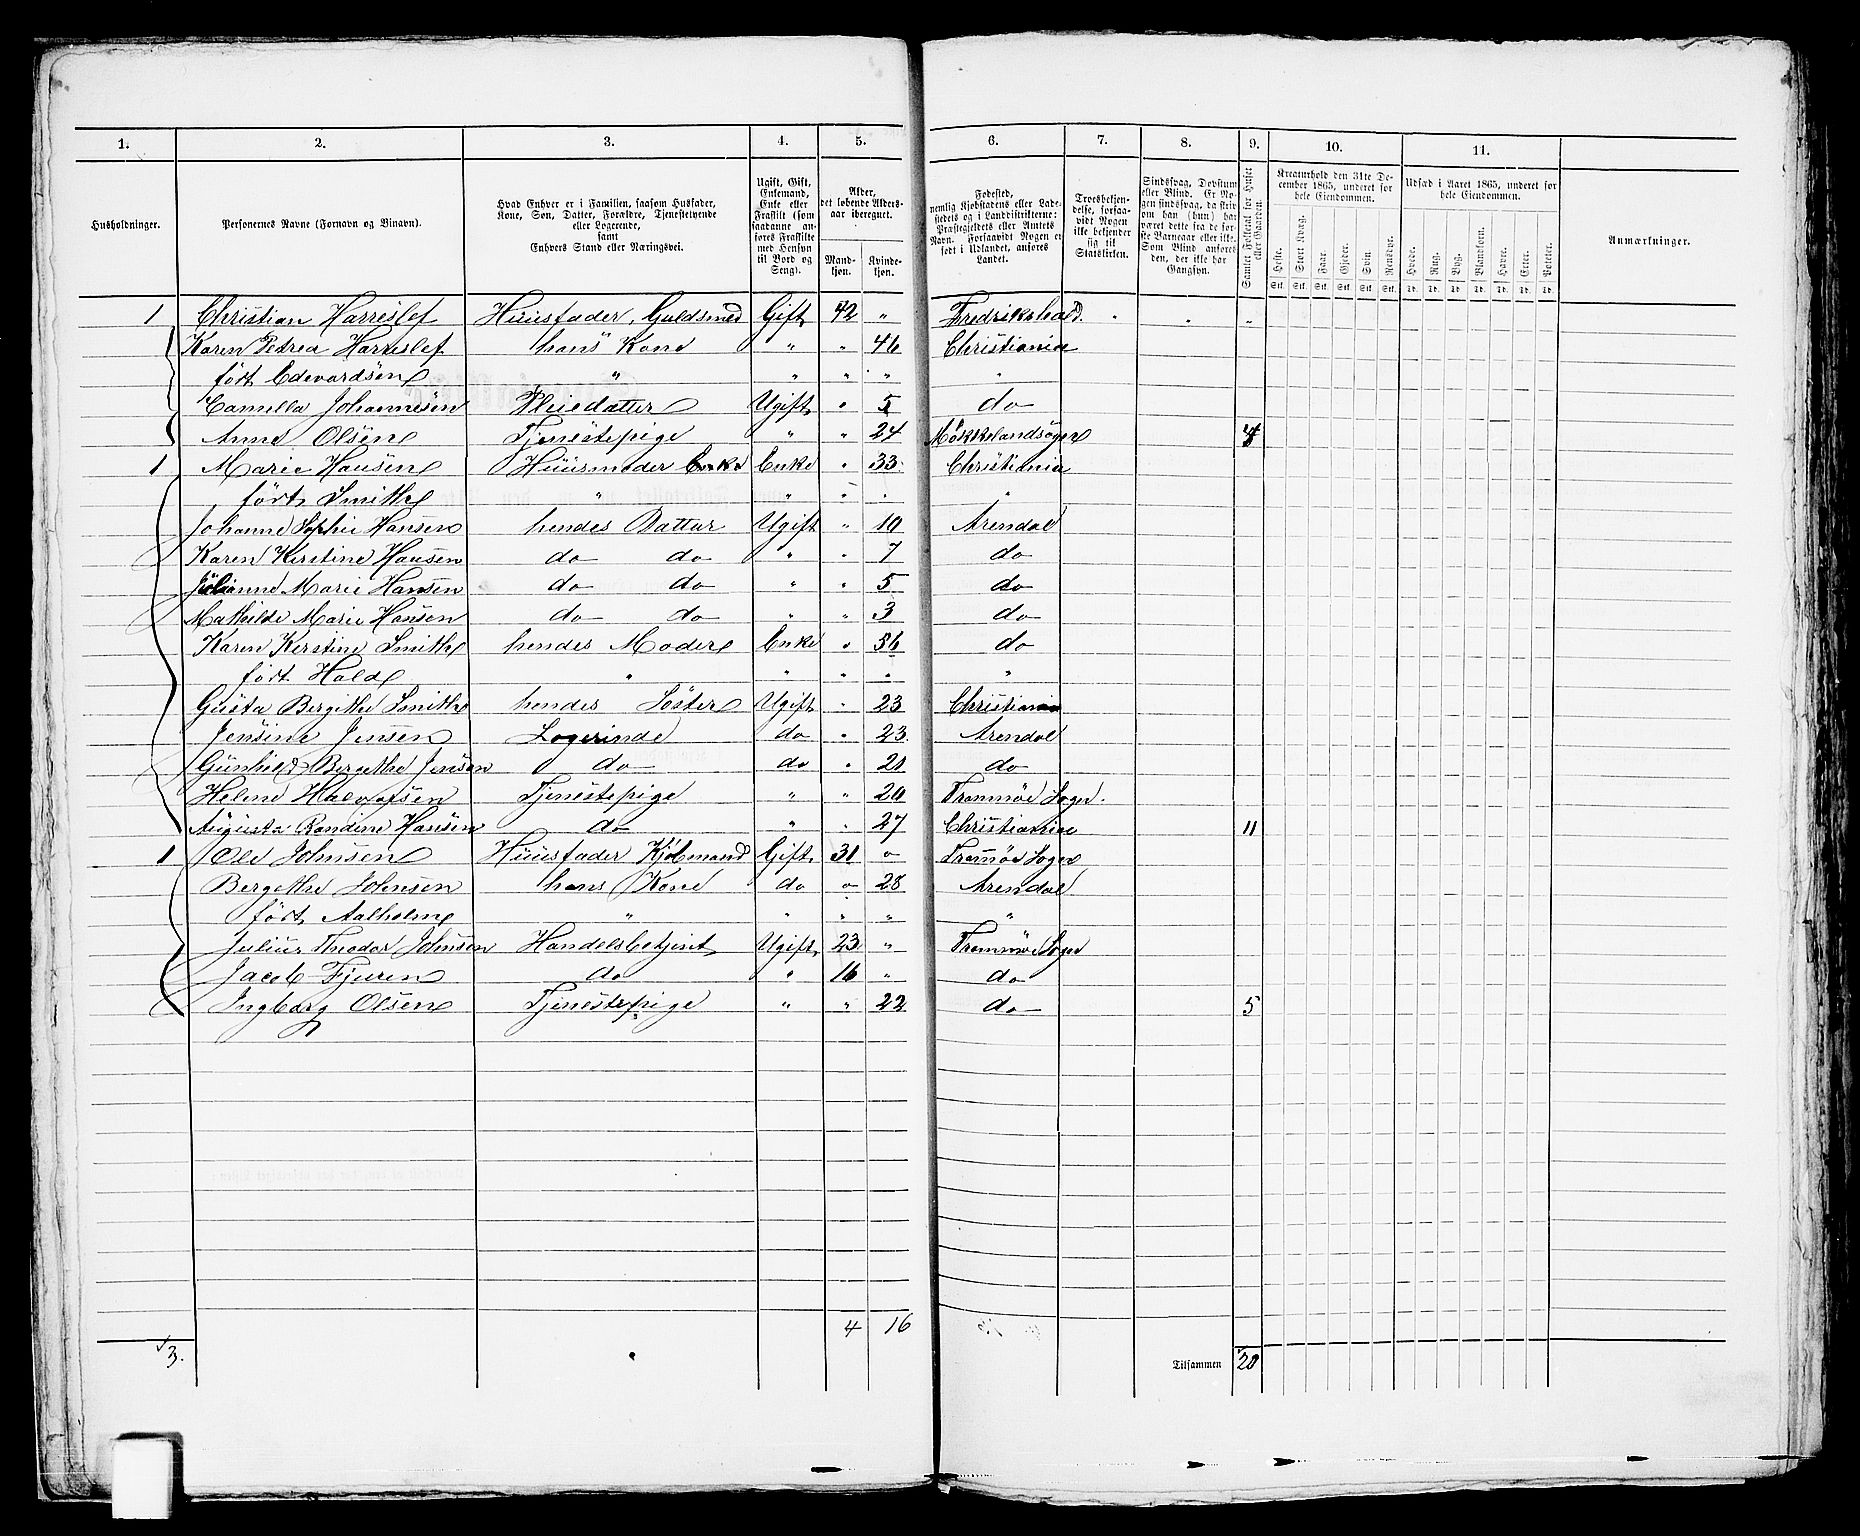 1. 2. 3. 4. 5. 6. 7. 8. 9. 10. 11.
Husholdninger.
Personernes Navne (Fornavn og Binavn).
Hvad Enhver er i Familien, saasom Husfader,
Kone, Søn, Datter, Forældre, Tjenestetyende
eller Logerende,
samt
Enhvers Stand eller Næringsvei.
Ugift, Gift,
Enkemand,
Enke eller
Fraskilt (som
saadanne an-
føres Fraskilte
med Hensyn
til Bord og
Seng).
Alder,
det løbende Alders-
aar iberegnet.
Mand-
kjøn.
Kvinde-
kjøn.
Fødested,
nemlig Kjøbstadens eller Lade-
stedets og i Landdistrikterne:
Præstegjeldets eller Amtets
Navn. Forsaavidt Nogen er
født i Udlandet, anføres
Landet.
Troesbekjen-
delse, forsaa-
vidt Nogen
ikke bekjender
sig til
Statskirken.
Sindssvag, Døvstum
eller Blind. Er No-
gen sindssvag, da skriv
om han (hun) har
været dette fra de før-
ste Barneaar eller ikke.
Som Blind anføres
den, der ikke har
Gangsyn.
Samlet Folketal for Huset
eller Gaarden.
Kreaturhold den 31te De-
cember 1865, underet for
hele Eiendommen.
Heste. Stort Kvæg. Faar. Gjeder. Svin. Rensdyr.
Stk. Stk. Stk. Stk. Stk. Stk.
Udsæd i Aaret 1865, underet for
hele Eiendommen.
Hvede. Rug. Byg. Blandkorn. Havre. Erter. Poteter.
Td. Td. Td. Td. Td. Td. Td.
Anmærkninger.
1 Christian Harreslef Huusfader, Guldsmed Gift 42 " Fredrikshald. " " "
Karen Petrea Harreslef hans Kone " " 46 Christiania
født Edevardsen " " " " "
Camella Johannesen Pleiedatter Ugift " 5 do
Anne Olsen Tjenestepige " " 24 4
1 Marie Hansen Huusmoder Enke Enke " 33 Christiania
født Smith " " " " "
Johanne Sophie Hansen hendes Dattur Ugift " 10 Arendal
Karen Kirstine Hansen do do " " 7 do
Marie Hansen do do " " 5 do
Mathilde Marie Hansen do do " " 3 do
Karen Kirstine Smith hendes Moder Enke " 56 do
født Hald " " " " "
Gusta Bergithe Smith hendes Søster Ugift " 23 Christiania
Jensine Jensen Logerinde do " 23 Arendal
Gunhild Bergethe Jensen do do " 21 do
Helene Halvorsen Tjenestepige " " 20 Tromøe Sogn.
Augusta Randine Hansen do " " 27 Christiania 11
1 Ole Johnsen Huusfader Kjøbmand Gift 31 " Tromøe Sogn
Bergethe Johnsen hans Kone do " 28 Arendal
født Aalholm " " " " "
Julius Theodor Johnsen Handelsbetjent Ugift 23 " Tromøe Sogn
Jacob Fjuren do " 16 " do
Ingborg Olsen Tjenestepige " " 22 do 5
4 16
3. Tilsammen 20